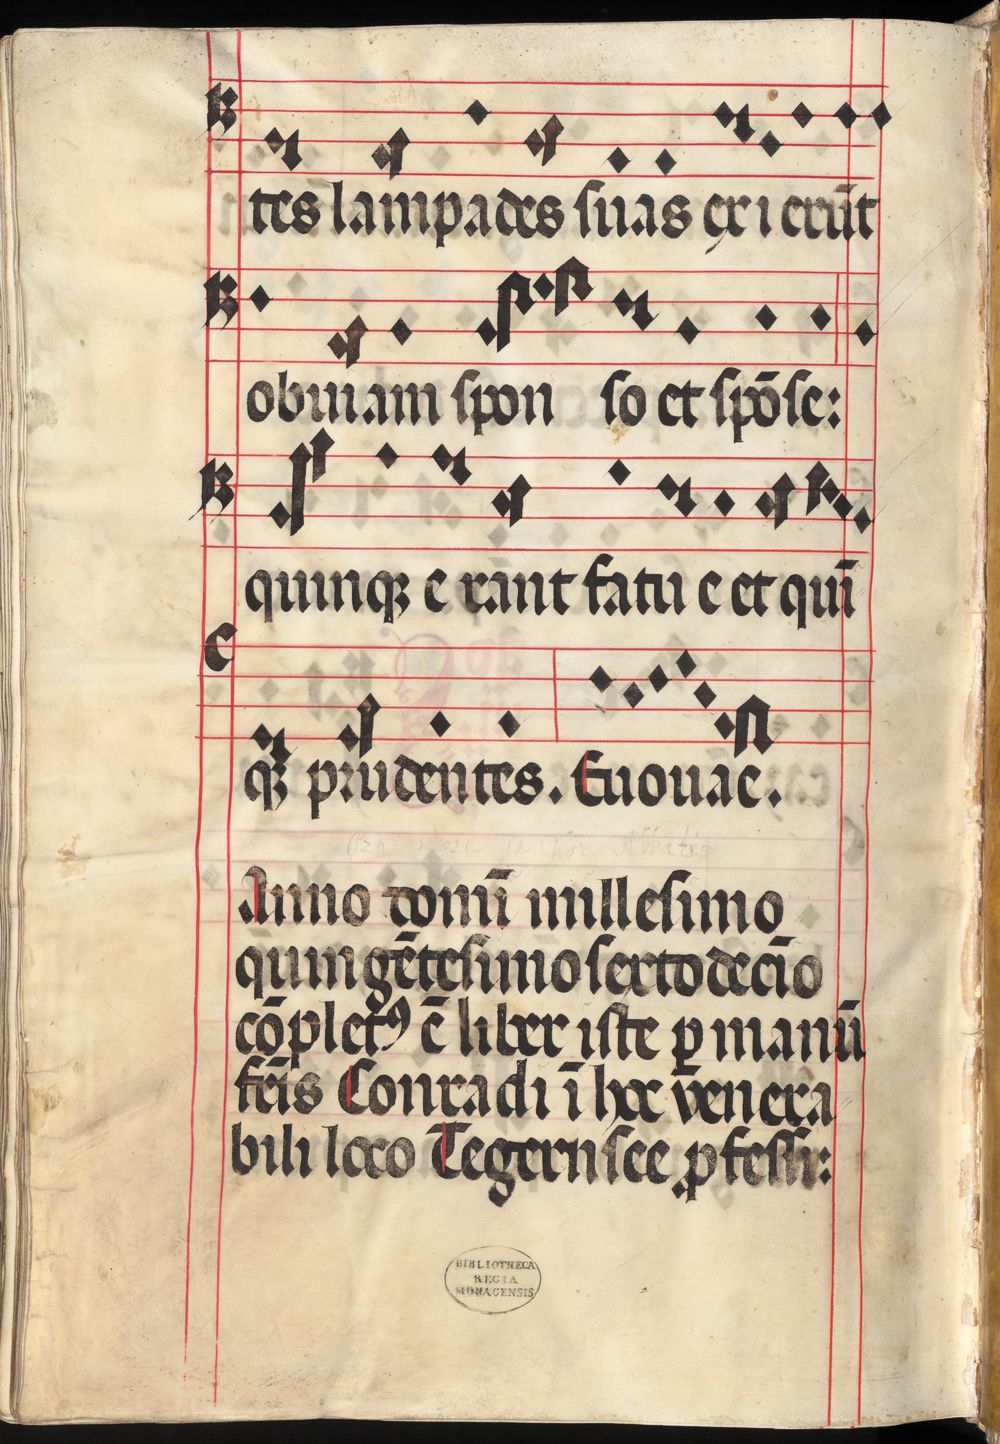 tes lampades suas exierūt
obuiam sponso et spōse:
quinqꝫ erant fatue et qui̅
qꝫ prudentes. Euouae.
Anno domi̅ millesimo
quingētesimo sexto deci̅o
cōpletꝰ ē liber iste ꝑ manū
fr̄is Conradi ī hoc venera
bili loco Tegernsee ꝓfessi:
BIBLIOTHECA
REGIA
MONACENSIS